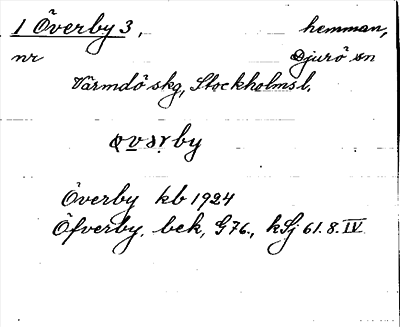 1 Överby 3, hemman,
nr Djurö sn
Värmdö skg, Stockholms l.
Överby kb 1924
Öfverby, bek, G76., kSj 61.8.IV